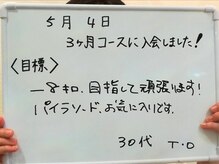 5月 4日
3ヶ月コースに入会しました!
〈目標〉
－8キロ、目指して頑張ります!
パイラソード、お気に入りです。
30代 T.O